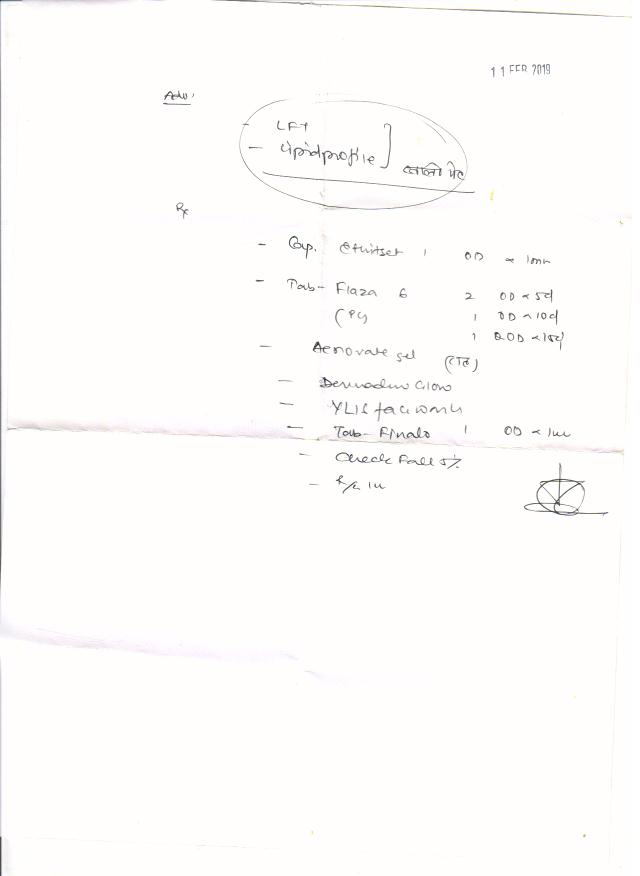 11 FEB 2019
Adv:
- LFT
- Lipid profile ] खाली पेट
Rx
- Cap. 1 OD x
- Tab- Flaza 6 2 OD x 5d
1 OD x 10d
1 OD x
- Acnovate gel (रात)
- Dermadew Glow
- YLIS face wash
- Tab- Finalo 1 OD x 1m
- Check Fall 5%
- 1m